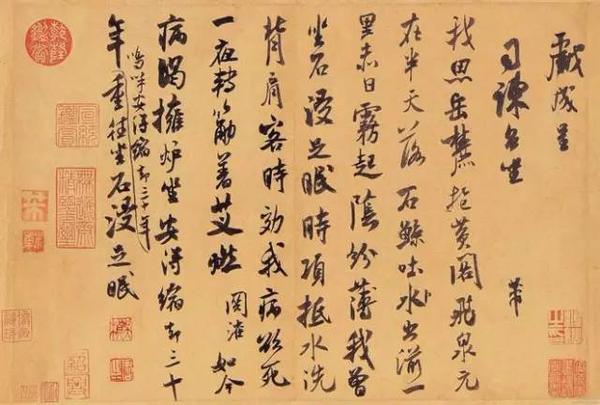 戲成呈
司諫台坐
芾
我思岳麓抱黃閣飛泉元
在半天落石鯨吐水出湔一
里赤日霧起陰紛薄我曾
坐石浸足眠時項抵水洗
背肩客時効我病欲死
一夜轉筋著艾燃 關治 如今
病渴擁爐坐安得縮却三十
嗚呼安得縮却三十年
年重往坐石浸足眠